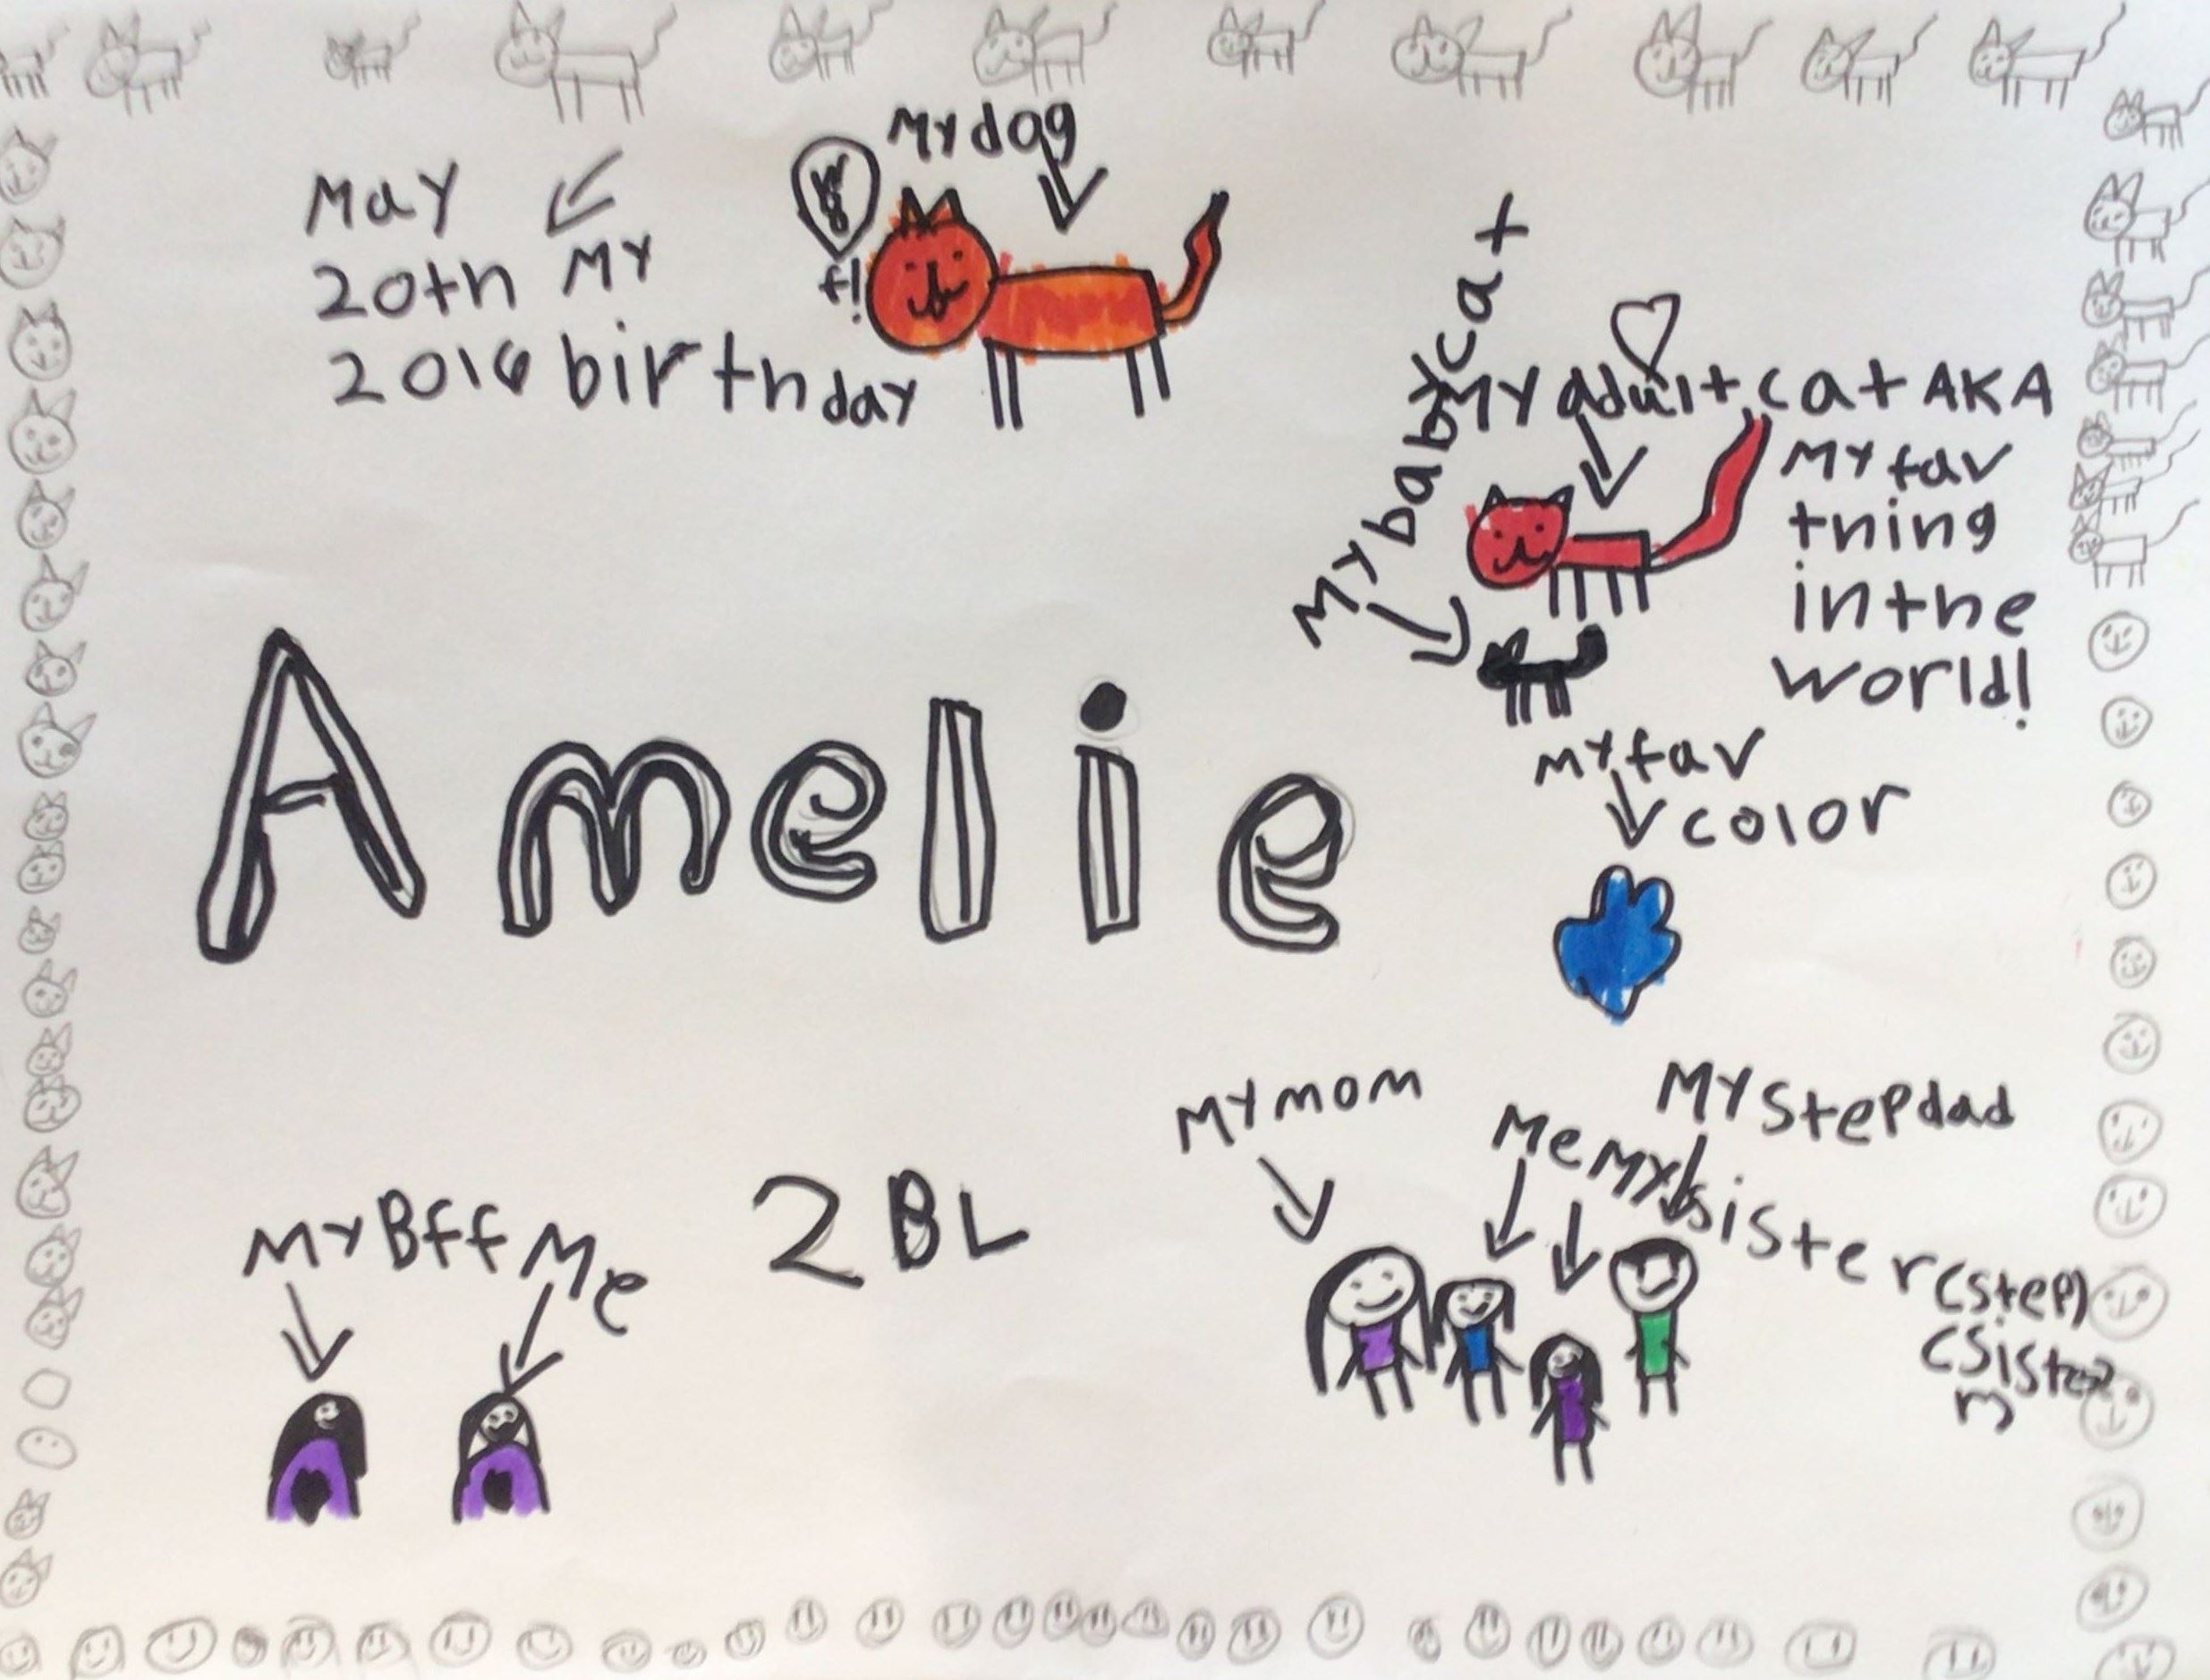 My dog
May
20th My
2016 birthday
f!
My baby cat
My adult cat AKA
My fav
thing
in the
world!
Amelie
My fav
color
My mom
Me
My sister (step)
(sister
My Stepdad
My Bff
Me
2BL